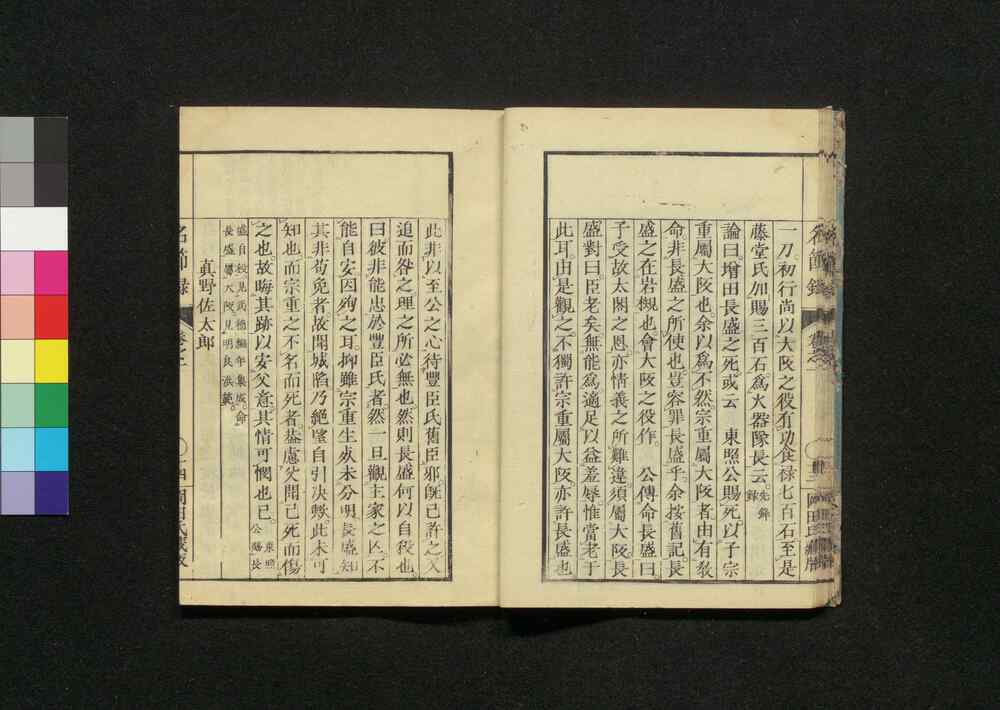 一刀初行尚以大阪之役有功食祿七百石至是
藤堂氏加賜三百石爲火器隊長云先鋒
錄
論曰增田長盛之死或云 東照公賜死以子宗
重屬大阪也余以爲不然宗重屬大阪者由有敎
命非長盛之所使也豈容罪長盛乎余按舊記長
盛之在岩槻也會大阪之役作 公傳命長盛曰
子受故太閤之恩亦情義之所難違須屬大阪長
盛對曰臣老矣無能爲適足以益羞辱惟當老于
此耳由是觀之不獨許宗重屬大阪亦許長盛也
此非以至公之心待豐臣氏舊臣邪旣已許之又
追而咎之理之所必無也然則長盛何以自殺也
曰彼非能忠於豐臣氏者然一旦觀主家之亡不
能自安因殉之耳抑雖宗重生死未分明長盛知
其非苟免者故聞城陷乃絕望自引決歟此未可
知也而宗重之不名而死者蓋慮父聞己死而傷
之也故晦其跡以安父意其情可憫也已東照
公賜長
盛自殺見武德編年集成命
長盛屬大阪見明良洪範
眞野佐太郎
名節錄 卷之二 十四 岡田氏藏版